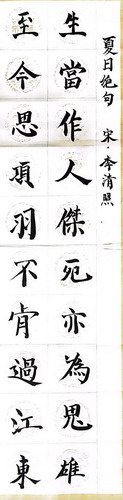 夏日绝句 宋·李清照
生當作人傑死亦為鬼雄
至今思項羽不肯過江東